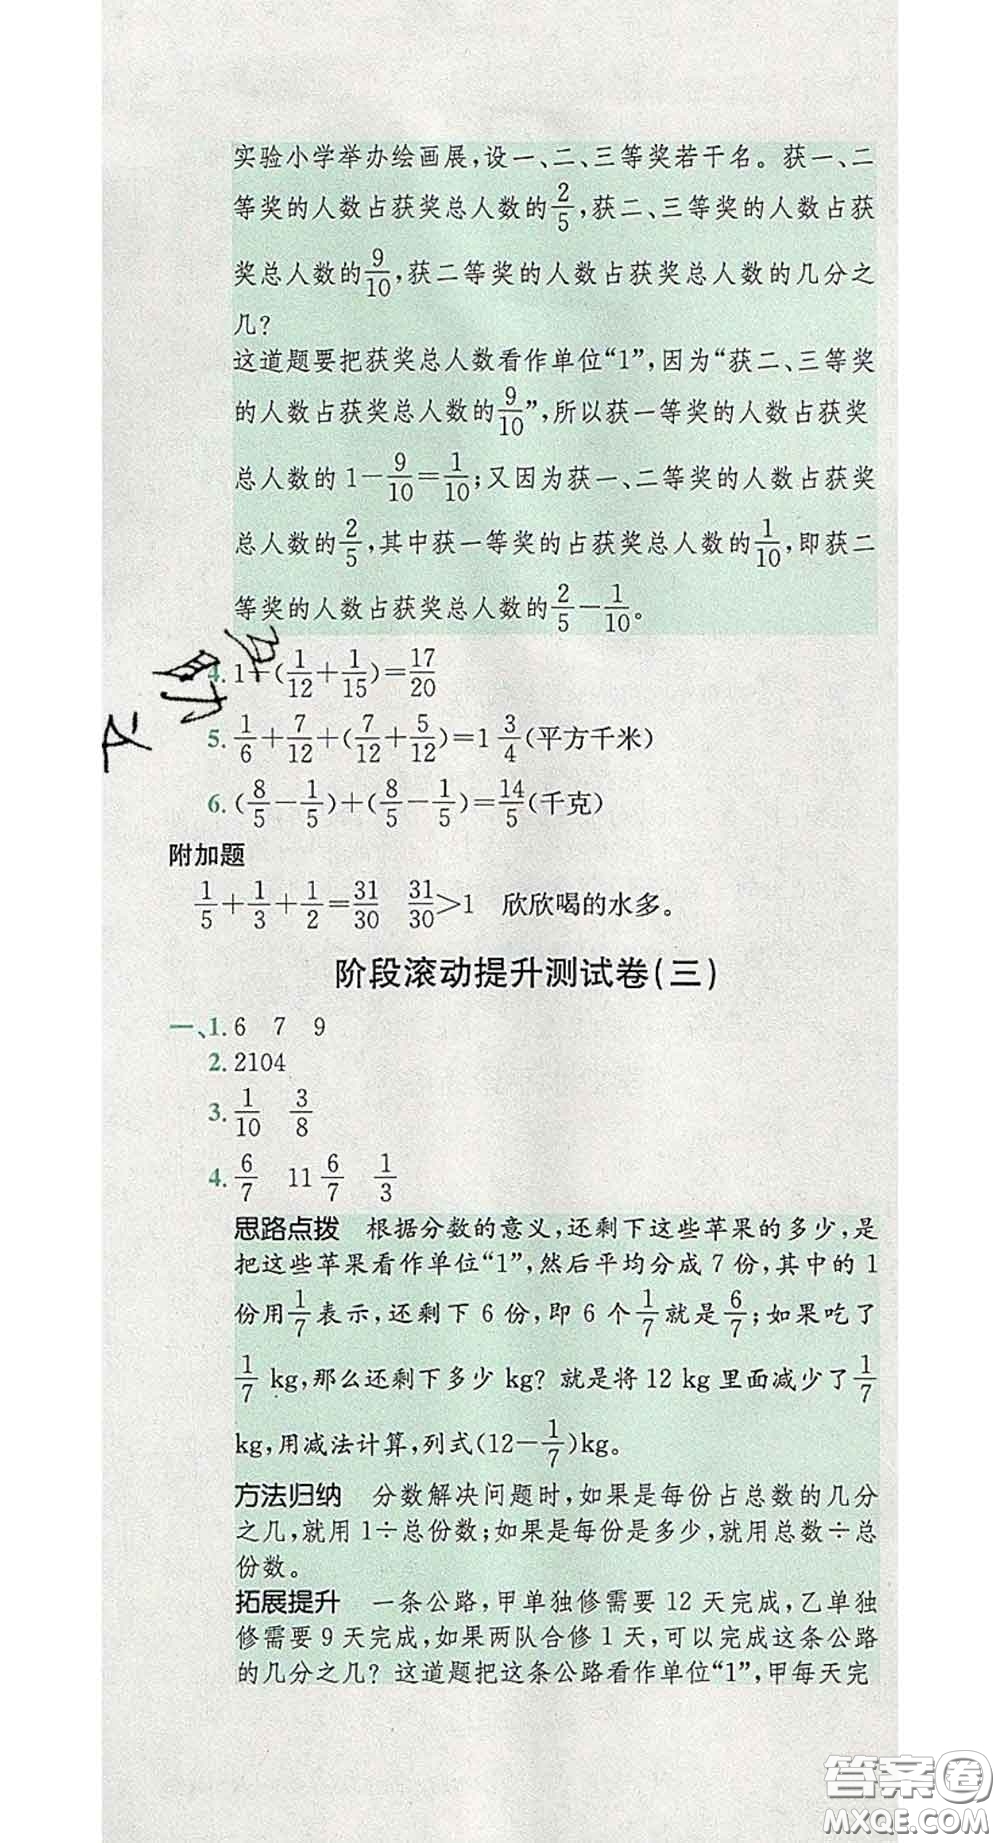 实验小学举办绘画展,设一、二、三等奖若干名。获一、二
等奖的人数占获奖总人数的2/5,获二、三等奖的人数占获
奖总人数的9/10,获二等奖的人数占获奖总人数的几分之
几?
这道题要把获奖总人数看作单位“1”,因为“获二、三等奖
的人数占获奖总人数的9/10”,所以获一等奖的人数占获奖
总人数的 1-9/10=1/10;又因为获一、二等奖的人数占获奖
总人数的2/5,其中获一等奖的占获奖总人数的1/10,即获二
等奖的人数占获奖总人数的2/5-1/10。
4. 1-(1/12+1/15)=17/20
5. 1/6+7/12+(7/12+5/12)=1 3/4(平方千米)
6. (8/5-1/5)+(8/5-1/5)=14/5(千克)
附加题
1/5+1/3+1/2=31/30 31/30>1 欣欣喝的水多。
阶段滚动提升测试卷(三)
一、1. 6 7 9
2. 2104
3. 1/10 3/8
4. 6/7 11 6/7 1/3
思路点拨 根据分数的意义,还剩下这些苹果的多少,是
把这些苹果看作单位“1”,然后平均分成 7 份,其中的 1
份用1/7表示,还剩下 6 份,即 6 个1/7就是6/7;如果吃了
1/7 kg,那么还剩下多少 kg? 就是将 12 kg 里面减少了1/7
kg,用减法计算,列式(12-1/7)kg。
方法归纳 分数解决问题时,如果是每份占总数的几分
之几,就用 1÷总份数;如果是每份是多少,就用总数÷总
份数。
拓展提升 一条公路,甲单独修需要 12 天完成,乙单独
修需要 9 天完成,如果两队合修 1 天,可以完成这条公路
的几分之几? 这道题把这条公路看作单位“1”,甲每天完
答案圈
MXQE.COM